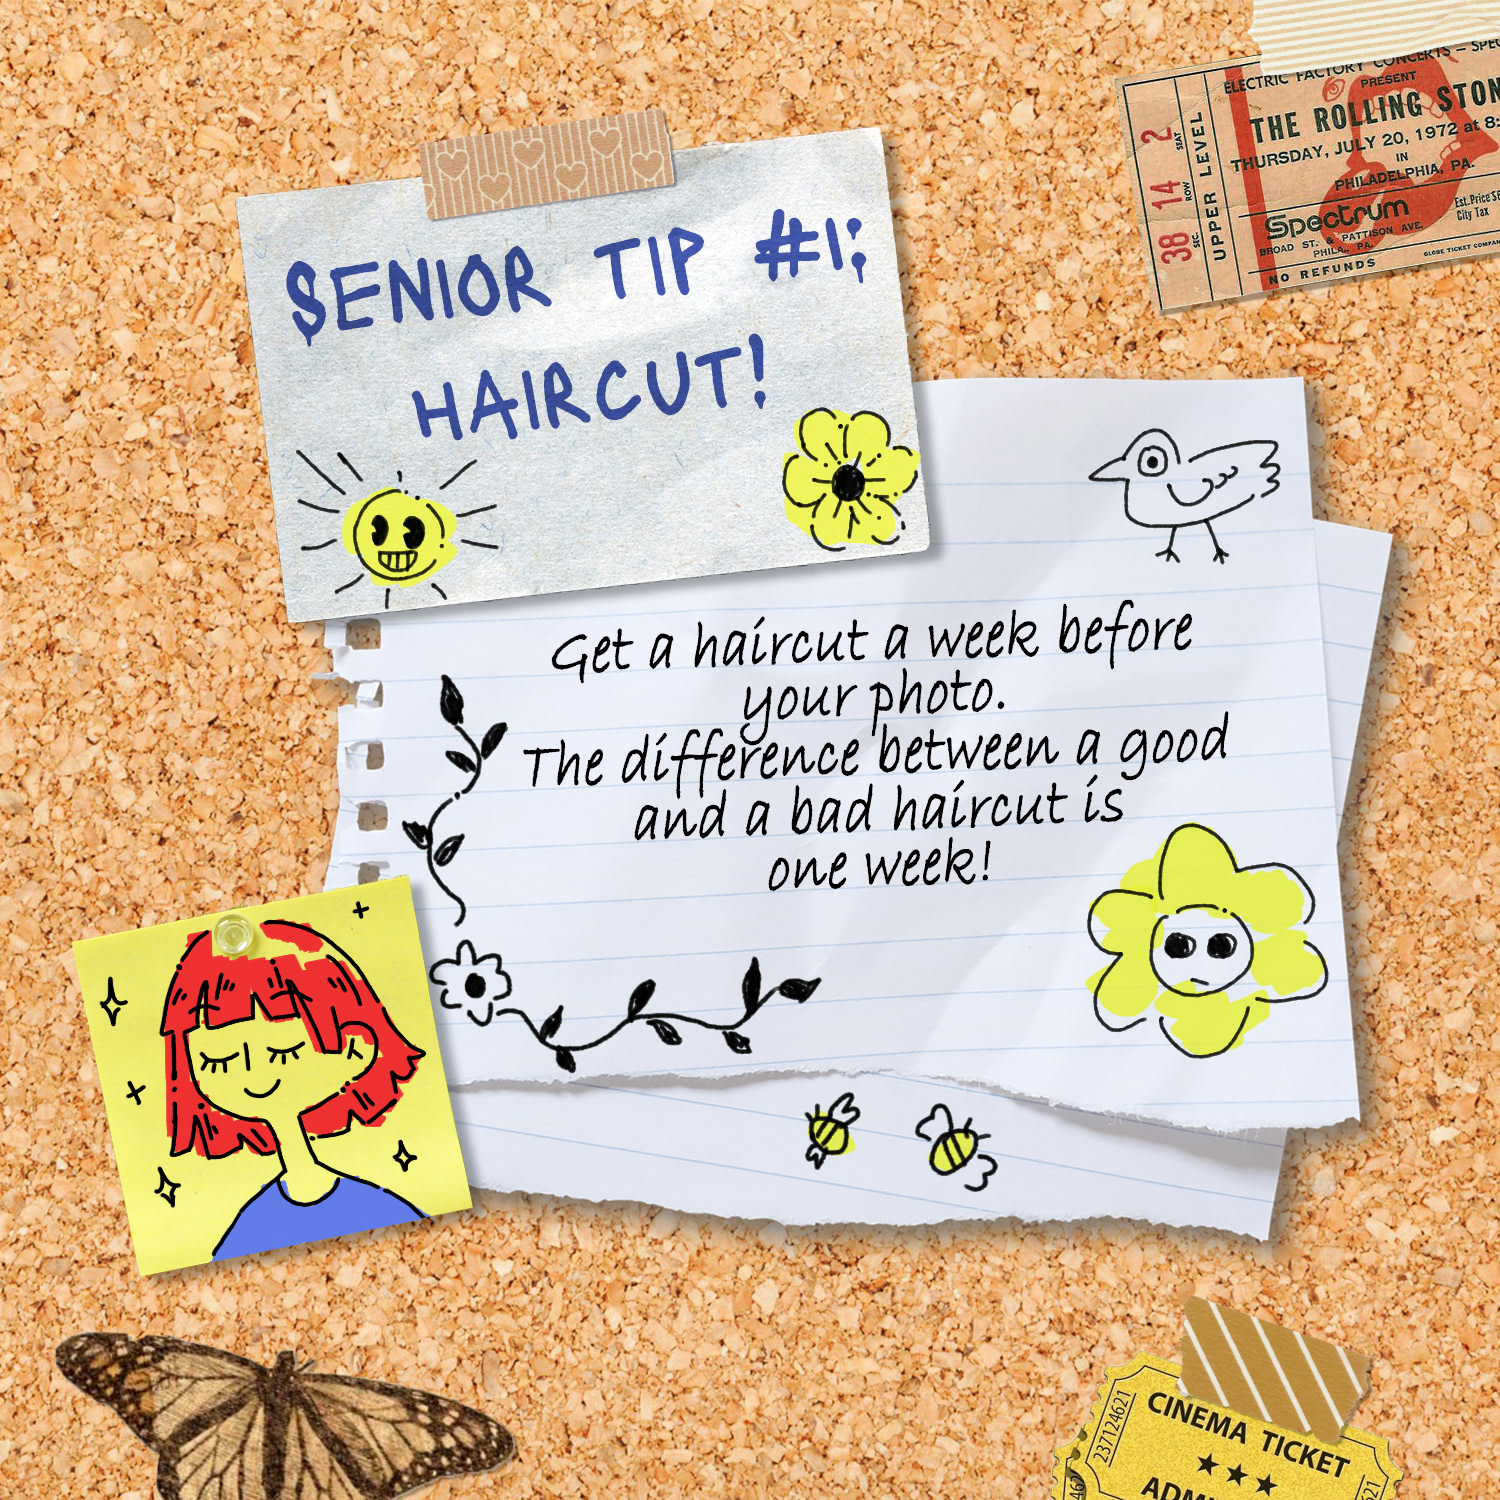 SENIOR TIP #1:
HAIRCUT!
Get a haircut a week before
your photo.
The difference between a good
and a bad haircut is
one week!
ELECTRIC FACTORY CONCERTS –
PRESENT
THE ROLLING STON
THURSDAY, JULY 20, 1972 at 8:
IN
PHILADELPHIA, PA.
Spectrum
BROAD ST. & PATTISON AVE.
PHILA., PA.
NO REFUNDS
Est. Price
City Tax
GLOBE TICKET COMPAN
UPPER LEVEL
38 14 2
SEC. ROW SEAT
CINEMA TICKET
237124621